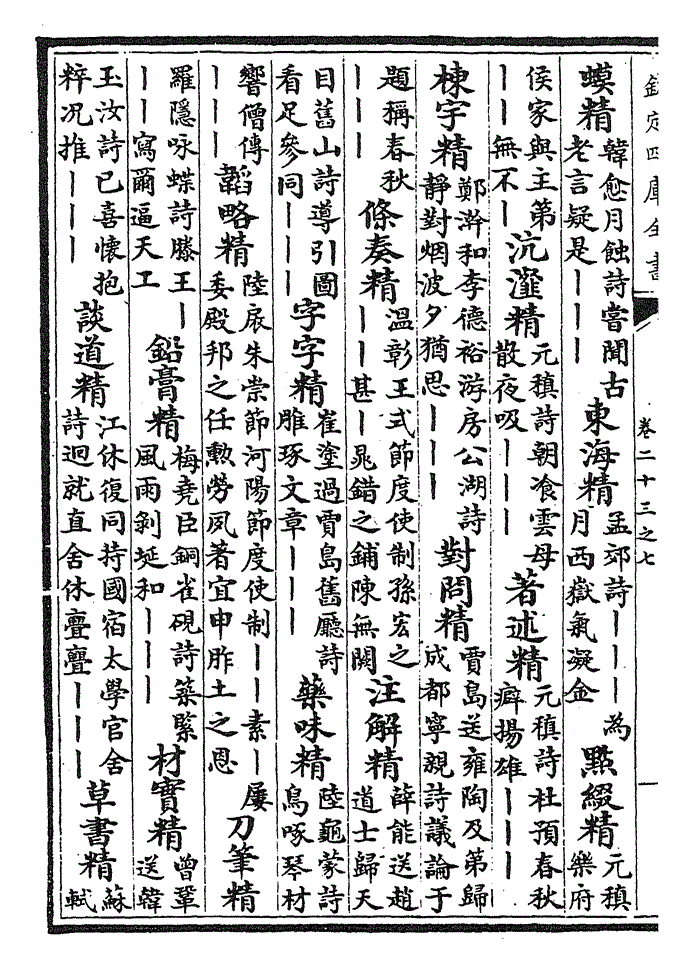 欽定四庫全書 卷二十三之七
蟆精 韓愈月蝕詩嘗聞古老言疑是｜｜｜ 東海精 孟郊詩｜｜｜為月西嶽氣凝金 點綴精 元稹樂府
侯家與主第｜｜無不｜ 沆瀣精 元稹詩朝飡雲母散夜吸｜｜｜ 著述精 元稹詩杜預春秋癖揚雄｜｜｜
棟宇精 鄭澣和李德裕游房公湖詩靜對烟波夕猶思｜｜｜ 對問精 賈島送雍陶及第歸成都寧親詩議論于
題稱春秋｜｜｜ 條奏精 溫彰王式節度使制孫宏之｜｜甚｜晁錯之鋪陳無闕 注解精 薛能送趙道士歸天
目舊山詩導引圖看足參同｜｜｜ 字字精 崔塗過賈島舊廳詩雕琢文章｜｜｜ 藥味精 陸龜蒙詩鳥啄琴材
響僧傳｜｜｜ 韜略精 陸扆朱崇節河陽節度使制｜｜素｜屢委殿邦之任勲勞夙著宜申胙土之恩 刀筆精
羅隱咏蝶詩滕王｜｜｜寫爾逼天工 鉛膏精 梅堯臣銅雀硯詩築緊風雨剝埏和｜｜｜ 材實精 曾鞏送韓
玉汝詩已喜懷抱粹况推｜｜｜ 談道精 江休復同持國宿太學官舍詩迴就直舍休亹亹｜｜｜ 草書精 蘇軾